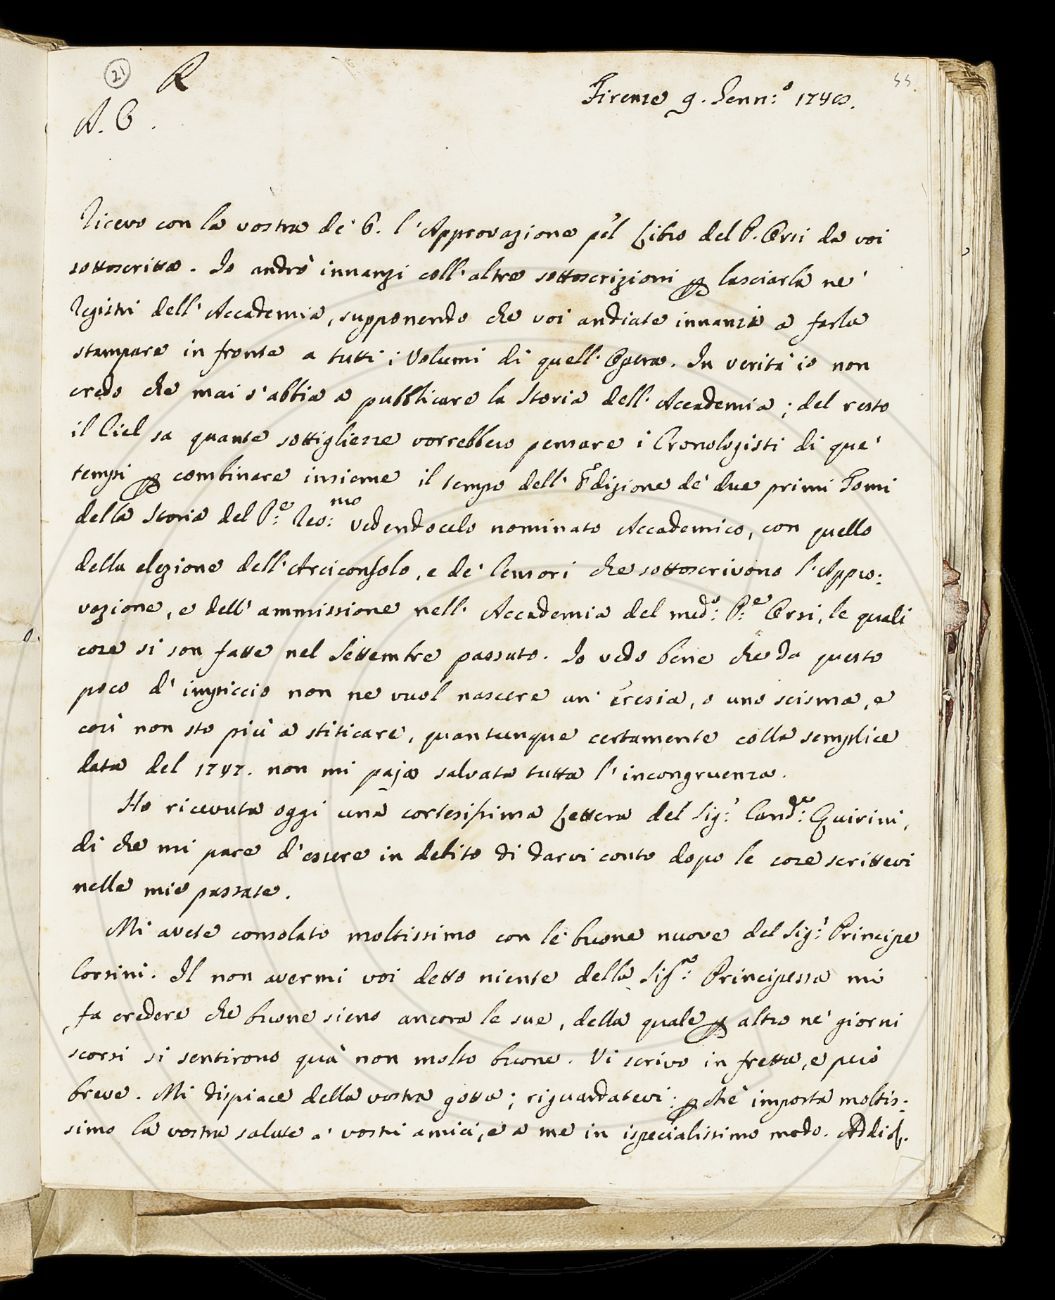 21 R
Firenze 9. Genn:o 1748. 55.
A. C.
Ricevo con la vostra de' 6. l'Approvazione pel Libro del P. Orsi da voi
sottoscritta. Io andrò innanzi coll'altre sottoscrizioni p lasciarla ne'
Registri dell'Accademia, supponendo che voi andiate innanzi a farla
stampare in fronte a tutti i Volumi di quell'Opera. In verità io non
credo che mai s'abbia a pubblicare la Storia dell'Accademia; del resto
il Ciel sa quante sottigliezze vorrebbero pensare i Cronologisti di que'
tempi p combinare insieme il tempo dell'Edizione de' due primi Tomi
della Storia del P:e Rev:mo vedendocelo nominato Accademico, con quello
della elezione dell'Arciconsolo, e de' Censori che sottoscrivono l'Appro:
vazione, e dell'ammissione nell'Accademia del med:o P:e Orsi, le quali
cose si son fatte nel Settembre passato. Io vedo bene che da questo
poco d'impiccio non ne vuol nascere un'eresia, o uno scisma, e
così non sto più a stiticare, quantunque certamente colla semplice
data del 1747. non mi paja salvata tutta l'incongruenza.
Ho ricevuta oggi una cortesissima Lettera del Sig:r Card:le Quirini,
di che mi pare d'essere in debito di darvi conto dopo le cose scrittevi
nelle mie passate.
Mi avete consolato moltissimo con le buone nuove del Sig:r Principe
Corsini. Il non avermi voi detto niente della Sig:ra Principessa mi
fa credere che buone sieno ancora le sue, della quale p altro ne' giorni
scorsi si sentirono quà non molto buone. Vi scrivo in fretta, e però
breve. Mi dispiace della vostra gotta; riguardatevi; pchè importa moltis:
simo la vostra salute a' vostri amici, e a me in ispecialissimo modo. Addio.